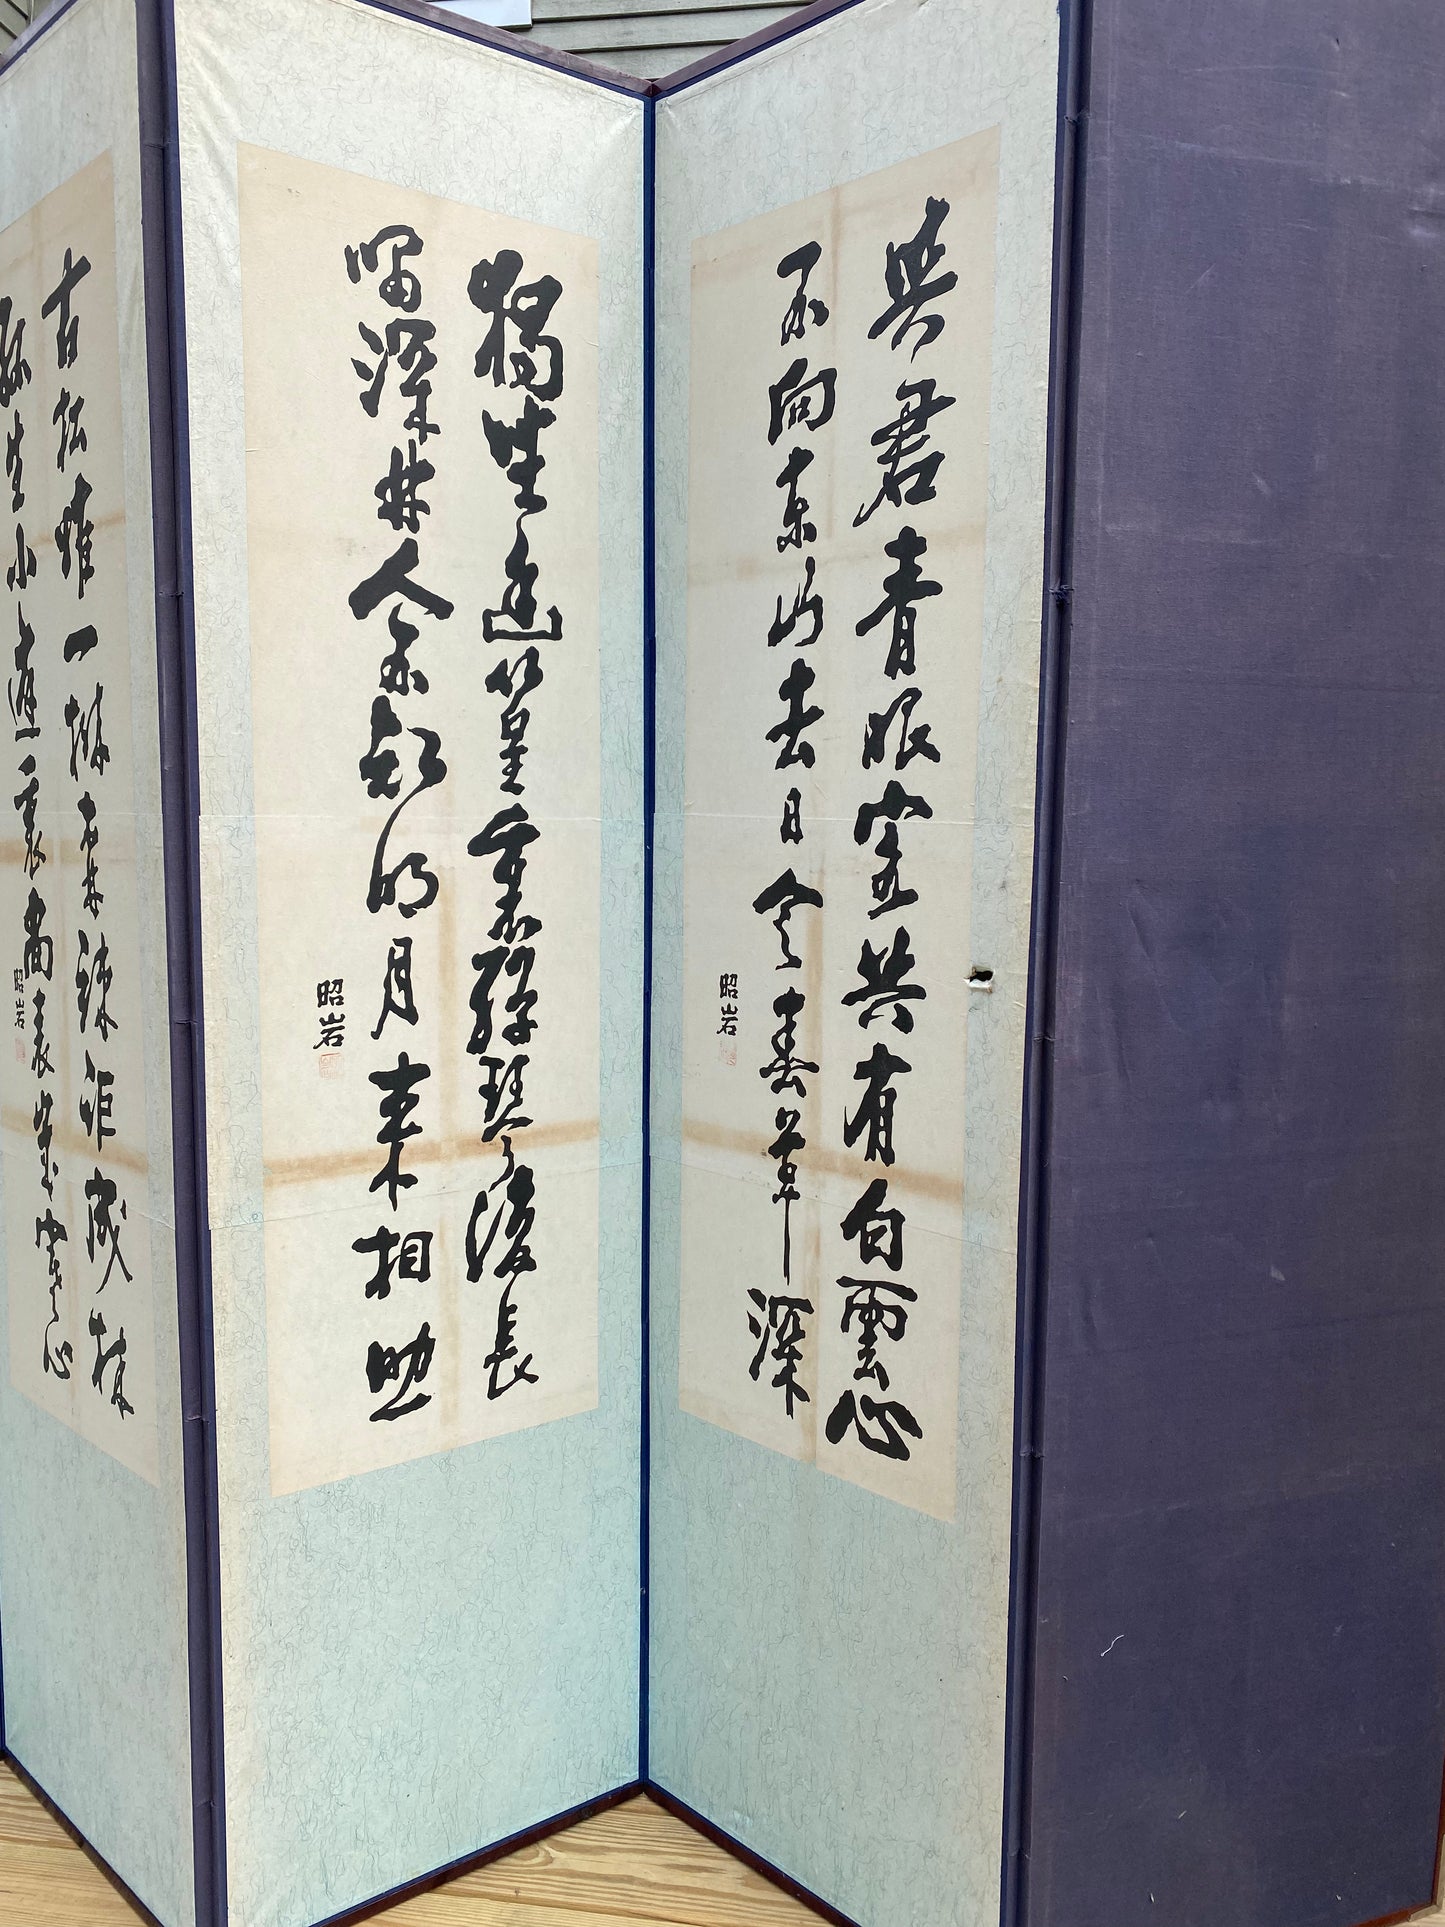 與君青眼客共有白雲心
不向東山去日令春草深
昭岩
獨坐幽篁裏彈琴復長
嘯深林人不知明月來相照
昭岩
古松唯一樹森竦詎成林
孤生小庭裏尚表歲寒心
昭岩